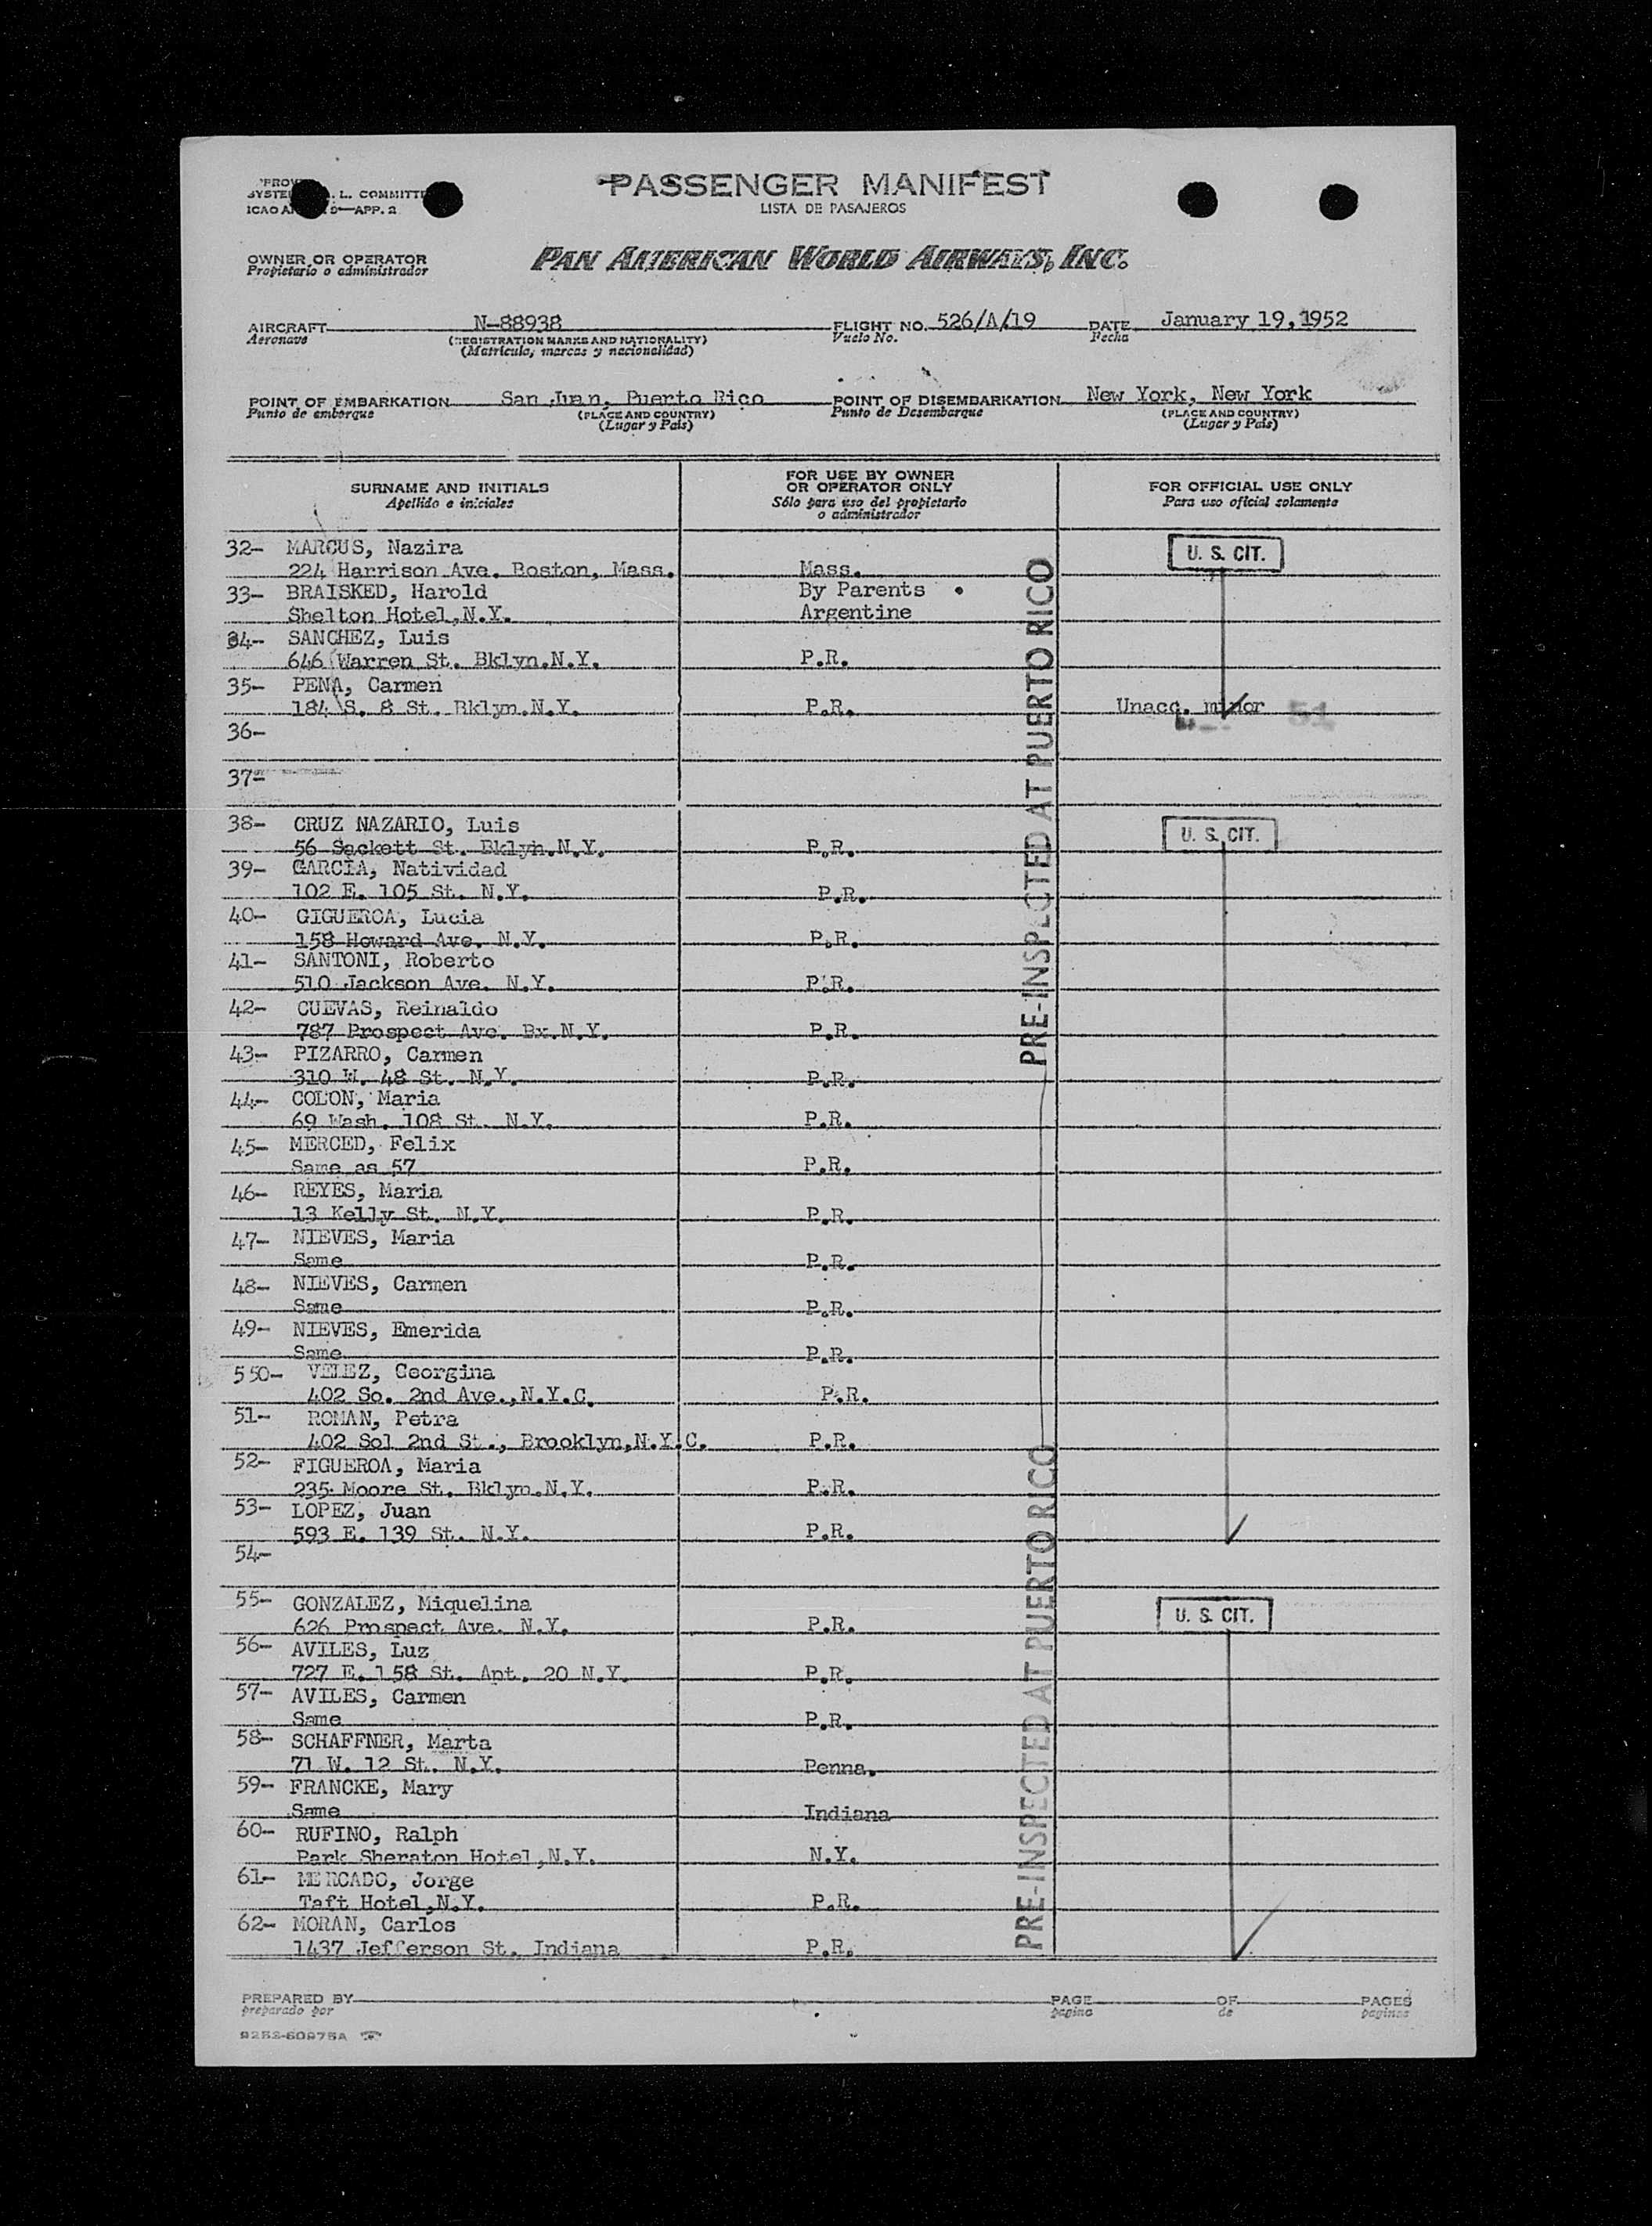 PASSENGER MANIFEST
LISTA DE PASAJEROS
L. COMMITT
ICAO APP. 2
OWNER OR OPERATOR
Propietario o administrador
PAN AMERICAN WORLD AIRWAYS, INC.
AIRCRAFT N-88938 FLIGHT NO. 526/A/19 DATE January 19, 1952
Aeronave (REGISTRATION MARKS AND NATIONALITY) Vuelo No. Fecha
(Matrícula, marcas y nacionalidad)
POINT OF EMBARKATION San Juan, Puerto Rico POINT OF DISEMBARKATION New York, New York
Punto de embarque (PLACE AND COUNTRY) Punto de Desembarque (PLACE AND COUNTRY)
(Lugar y País) (Lugar y País)
SURNAME AND INITIALS
Apellido e iniciales
FOR USE BY OWNER
OR OPERATOR ONLY
Sólo para uso del propietario
o administrador
FOR OFFICIAL USE ONLY
Para uso oficial solamente
32- MARCUS, Nazira U. S. CIT.
224 Harrison Ave. Boston, Mass. Mass.
33- BRAISKED, Harold By Parents
Shelton Hotel,N.Y. Argentine
34- SANCHEZ, Luis
646 Warren St. Bklyn.N.Y. P.R.
35- PENA, Carmen
184 S. 8 St. Bklyn.N.Y. P.R. Unacc. minor 51
36-
37-
38- CRUZ NAZARIO, Luis U. S. CIT.
56 Sackett St. Bklyh.N.Y. P.R.
39- GARCIA, Natividad
102 E. 105 St. N.Y. P.R.
40- GIGUEROA, Lucia
158 Howard Ave. N.Y. P.R.
41- SANTONI, Roberto
510 Jackson Ave. N.Y. P.R.
42- CUEVAS, Reinaldo
787 Prospect Ave. Bx.N.Y. P.R.
43- PIZARRO, Carmen
310 W. 48 St. N.Y. P.R.
44- COLON, Maria
69 Wash. 108 St. N.Y. P.R.
45- MERCED, Felix
Same as 57 P.R.
46- REYES, Maria
13 Kelly St. N.Y. P.R.
47- NIEVES, Maria
Same P.R.
48- NIEVES, Carmen
Same P.R.
49- NIEVES, Emerida
Same P.R.
550- VELEZ, Georgina
402 So. 2nd Ave.,N.Y.C. P.R.
51- ROMAN, Petra
402 Sol 2nd St., Brooklyn,N.Y.C. P.R.
52- FIGUEROA, Maria
235 Moore St. Bklyn.N.Y. P.R.
53- LOPEZ, Juan
593 E. 139 St. N.Y. P.R.
54-
55- GONZALEZ, Miquelina U. S. CIT.
626 Prospect Ave. N.Y. P.R.
56- AVILES, Luz
727 E. 158 St. Apt. 20 N.Y. P.R.
57- AVILES, Carmen
Same P.R.
58- SCHAFFNER, Marta
71 W. 12 St. N.Y. Penna.
59- FRANCKE, Mary
Same Indiana
60- RUFINO, Ralph
Park Sheraton Hotel,N.Y. N.Y.
61- MERCADO, Jorge
Taft Hotel,N.Y. P.R.
62- MORAN, Carlos
1437 Jefferson St. Indiana P.R.
PRE-INSPECTED AT PUERTO RICO
PRE-INSPECTED AT PUERTO RICO
PREPARED BY PAGE OF PAGES
preparado por página de páginas